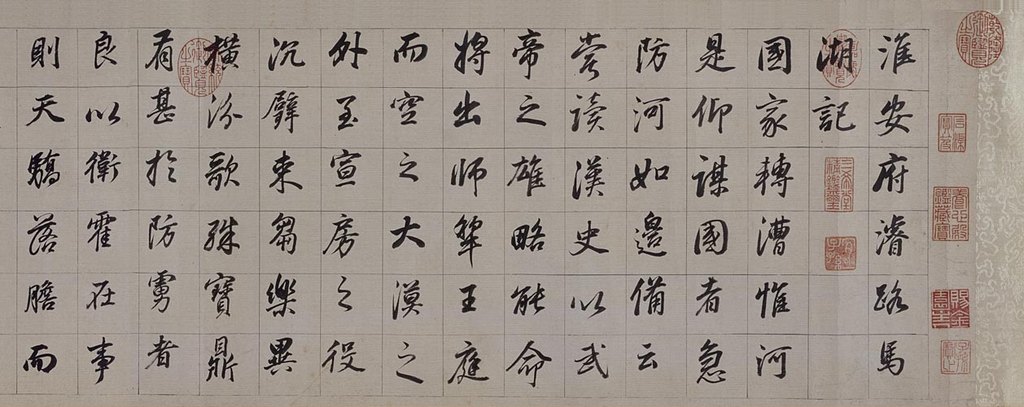 淮安府濬路馬
湖記
國家轉漕惟河
是仰謀國者急
防河如邊備云
嘗讀漢史以武
帝之雄略能命
將出師犂王庭
而空之大漠之
外至宣房之役
沉璧束芻樂異
橫汾歌殊寶鼎
有甚於防虜者
良以衛霍在事
則天驕落膽而